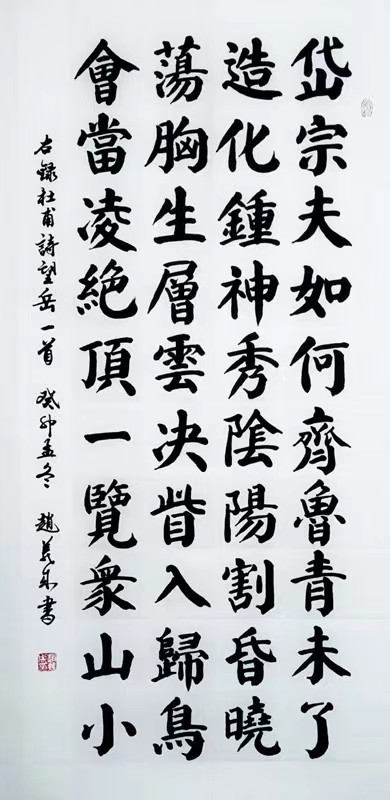 岱宗夫如何齊魯青未了
造化鍾神秀陰陽割昏曉
蕩胸生層雲决眥入歸鳥
會當凌絶頂一覽衆山小
右録杜甫詩望岳一首 癸卯孟冬 趙義成書